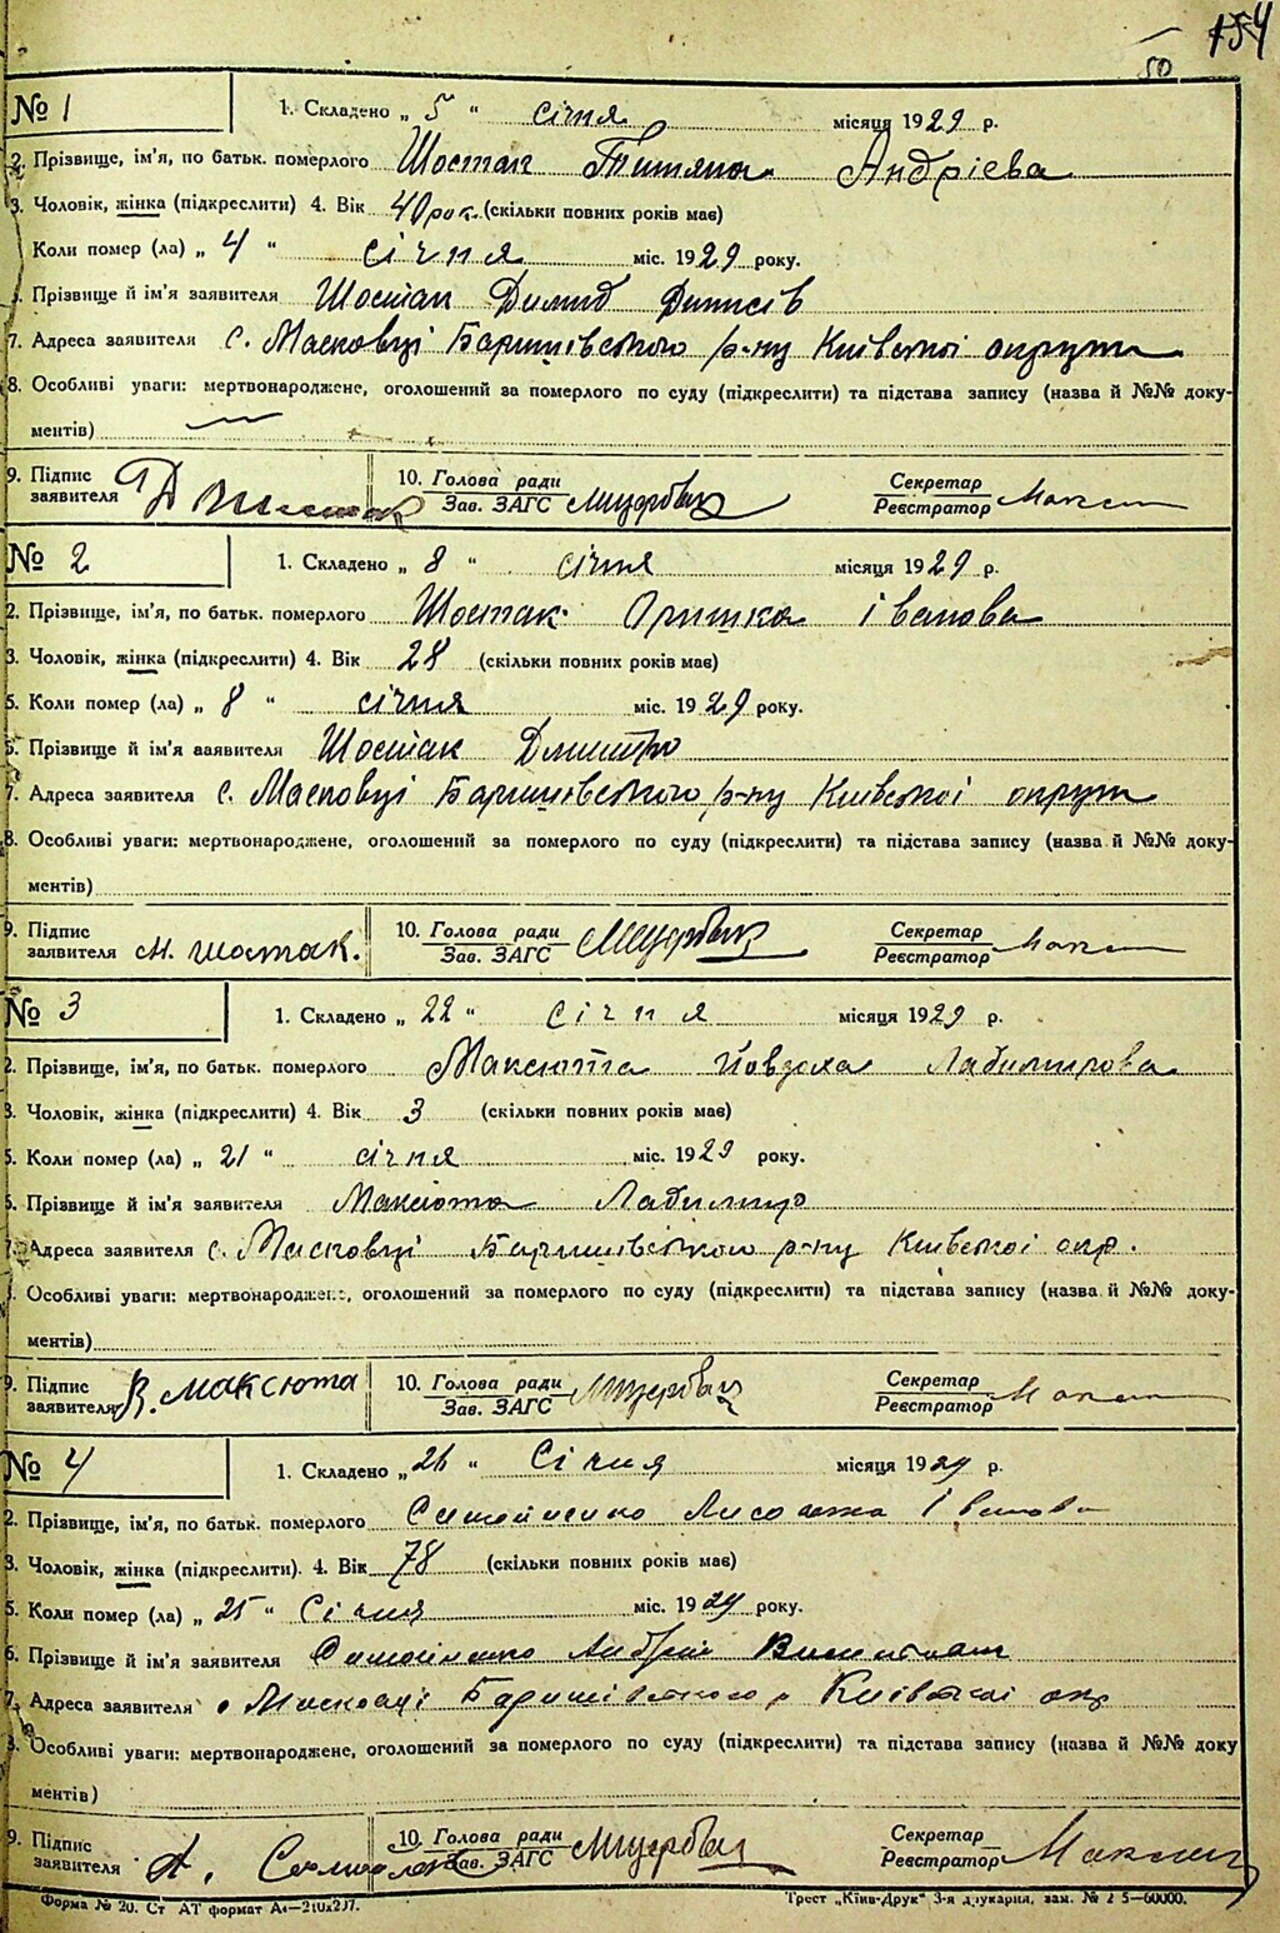 154
50
№ 1 1. Складено „ 5 “ січня місяця 1929 р.
2. Прізвище, ім'я, по батьк. померлого Шостак Титяна Андрієва
3. Чоловік, жінка (підкреслити) 4. Вік 40 рок. (скільки повних років має)
Коли помер (ла) „ 4 “ січня міс. 1929 року.
Прізвище й ім'я заявителя Шостак Динисів
7. Адреса заявителя с. Масковці Баришівського р-ну Київської округи
8. Особливі уваги: мертвонароджене, оголошений за померлого по суду (підкреслити) та підстава запису (назва й №№ доку-
ментів)
9. Підпис заявителя 10. Голова ради Секретар
Зав. ЗАГС Реєстратор
№ 2 1. Складено „ 8 “ січня місяця 1929 р.
2. Прізвище, ім'я, по батьк. померлого Шостак Оришка Іванова
3. Чоловік, жінка (підкреслити) 4. Вік 28 (скільки повних років має)
5. Коли помер (ла) „ 8 “ січня міс. 1929 року.
6. Прізвище й ім'я заявителя Шостак Дмитро
7. Адреса заявителя с. Масковці Баришівського р-ну Київської округи
8. Особливі уваги: мертвонароджене, оголошений за померлого по суду (підкреслити) та підстава запису (назва й №№ доку-
ментів)
9. Підпис заявителя Шостак. 10. Голова ради Секретар
Зав. ЗАГС Реєстратор
№ 3 1. Складено „ 22 “ січня місяця 1929 р.
2. Прізвище, ім'я, по батьк. померлого Максюта Йовдоха Лабимирова
3. Чоловік, жінка (підкреслити) 4. Вік 3 (скільки повних років має)
5. Коли помер (ла) „ 21 “ січня міс. 1929 року.
6. Прізвище й ім'я заявителя Максюта Лабимир
7. Адреса заявителя с. Масковці Баришівського р-ну Київської окр.
Особливі уваги: мертвонароджене, оголошений за померлого по суду (підкреслити) та підстава запису (назва й №№ доку-
ментів)
9. Підпис заявителя В. Максюта 10. Голова ради Секретар
Зав. ЗАГС Реєстратор
№ 4 1. Складено „ 26 “ Січня місяця 1929 р.
2. Прізвище, ім'я, по батьк. померлого Самойленко Іванова
3. Чоловік, жінка (підкреслити). 4. Вік 78 (скільки повних років має)
5. Коли помер (ла) „ 25 “ Січня міс. 1929 року.
6. Прізвище й ім'я заявителя Самойленко Андрій
7. Адреса заявителя с Масковці Баришівського р Київської окр
8. Особливі уваги: мертвонароджене, оголошений за померлого по суду (підкреслити) та підстава запису (назва й №№ доку
ментів)
9. Підпис заявителя А. 10. Голова ради Секретар
Зав. ЗАГС Реєстратор
Форма № 20. Ст АТ формат А4—210х297. Трест „Київ-Друк“ 3-я друкарня, зам. № 2 5—60000.